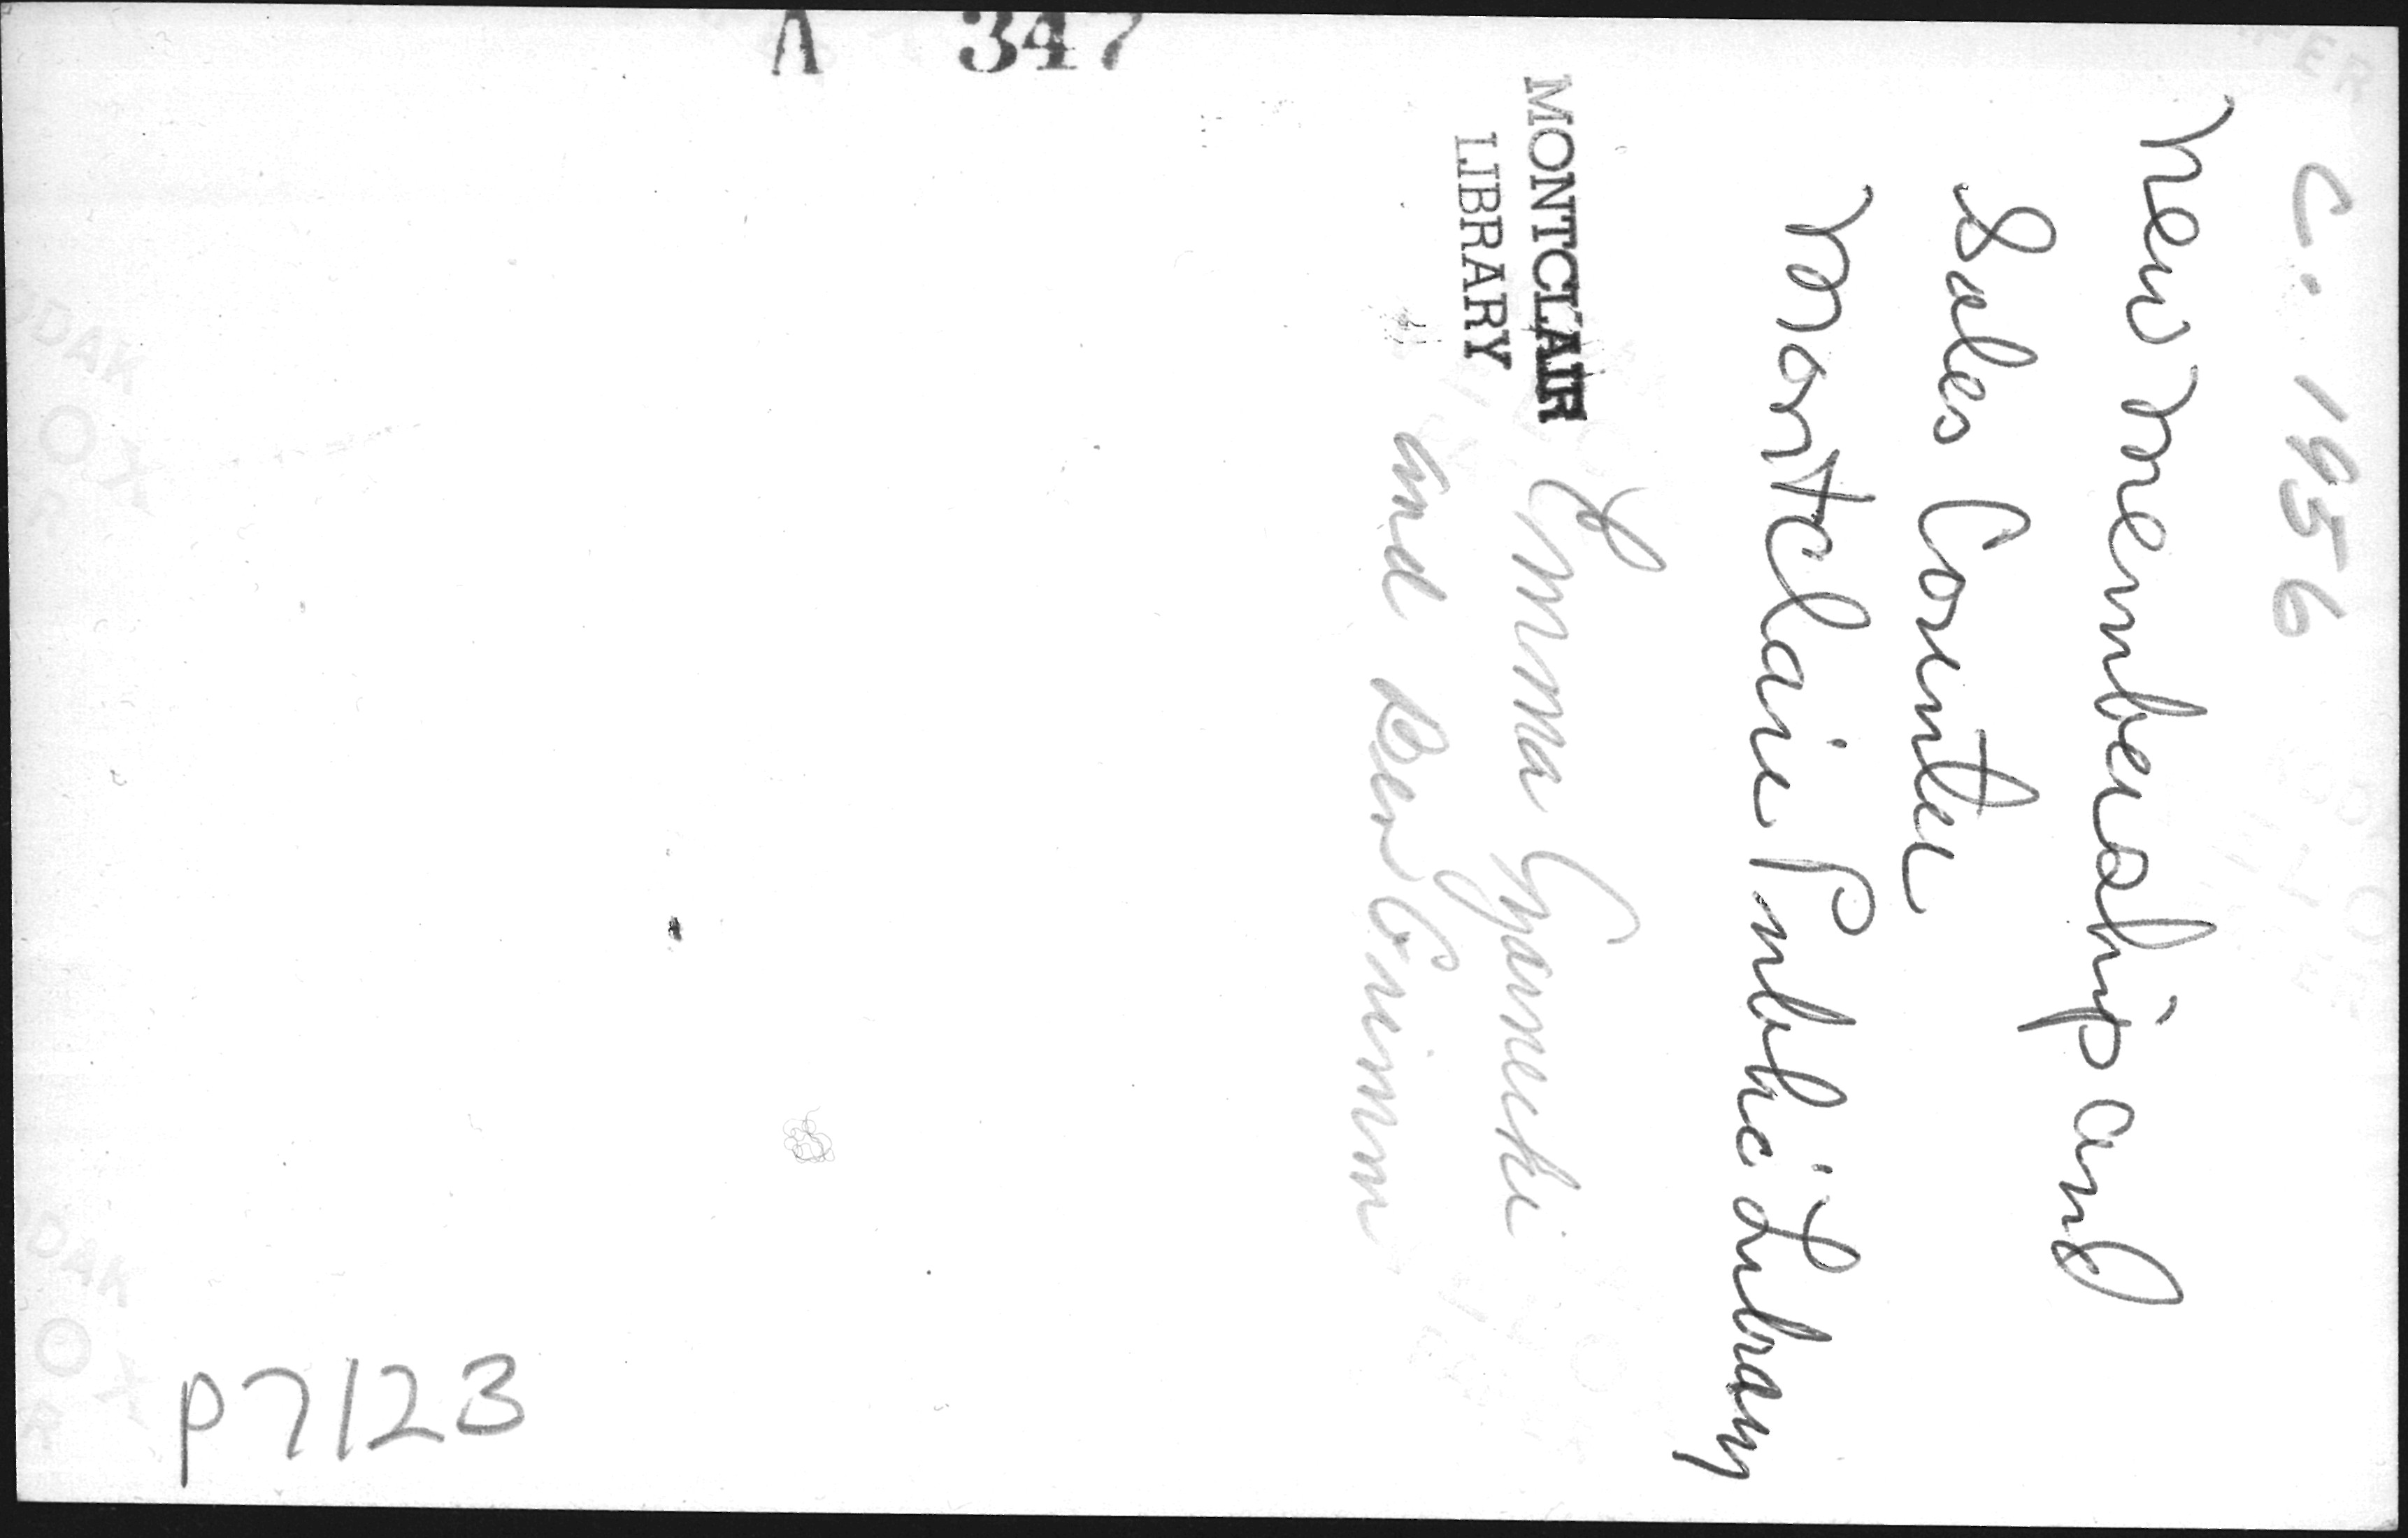 C. 1956
New Membership and
Sales Counter
Montclair Public Library
MONTCLAIR
LIBRARY
Emma
and Ben
A 347
P7123